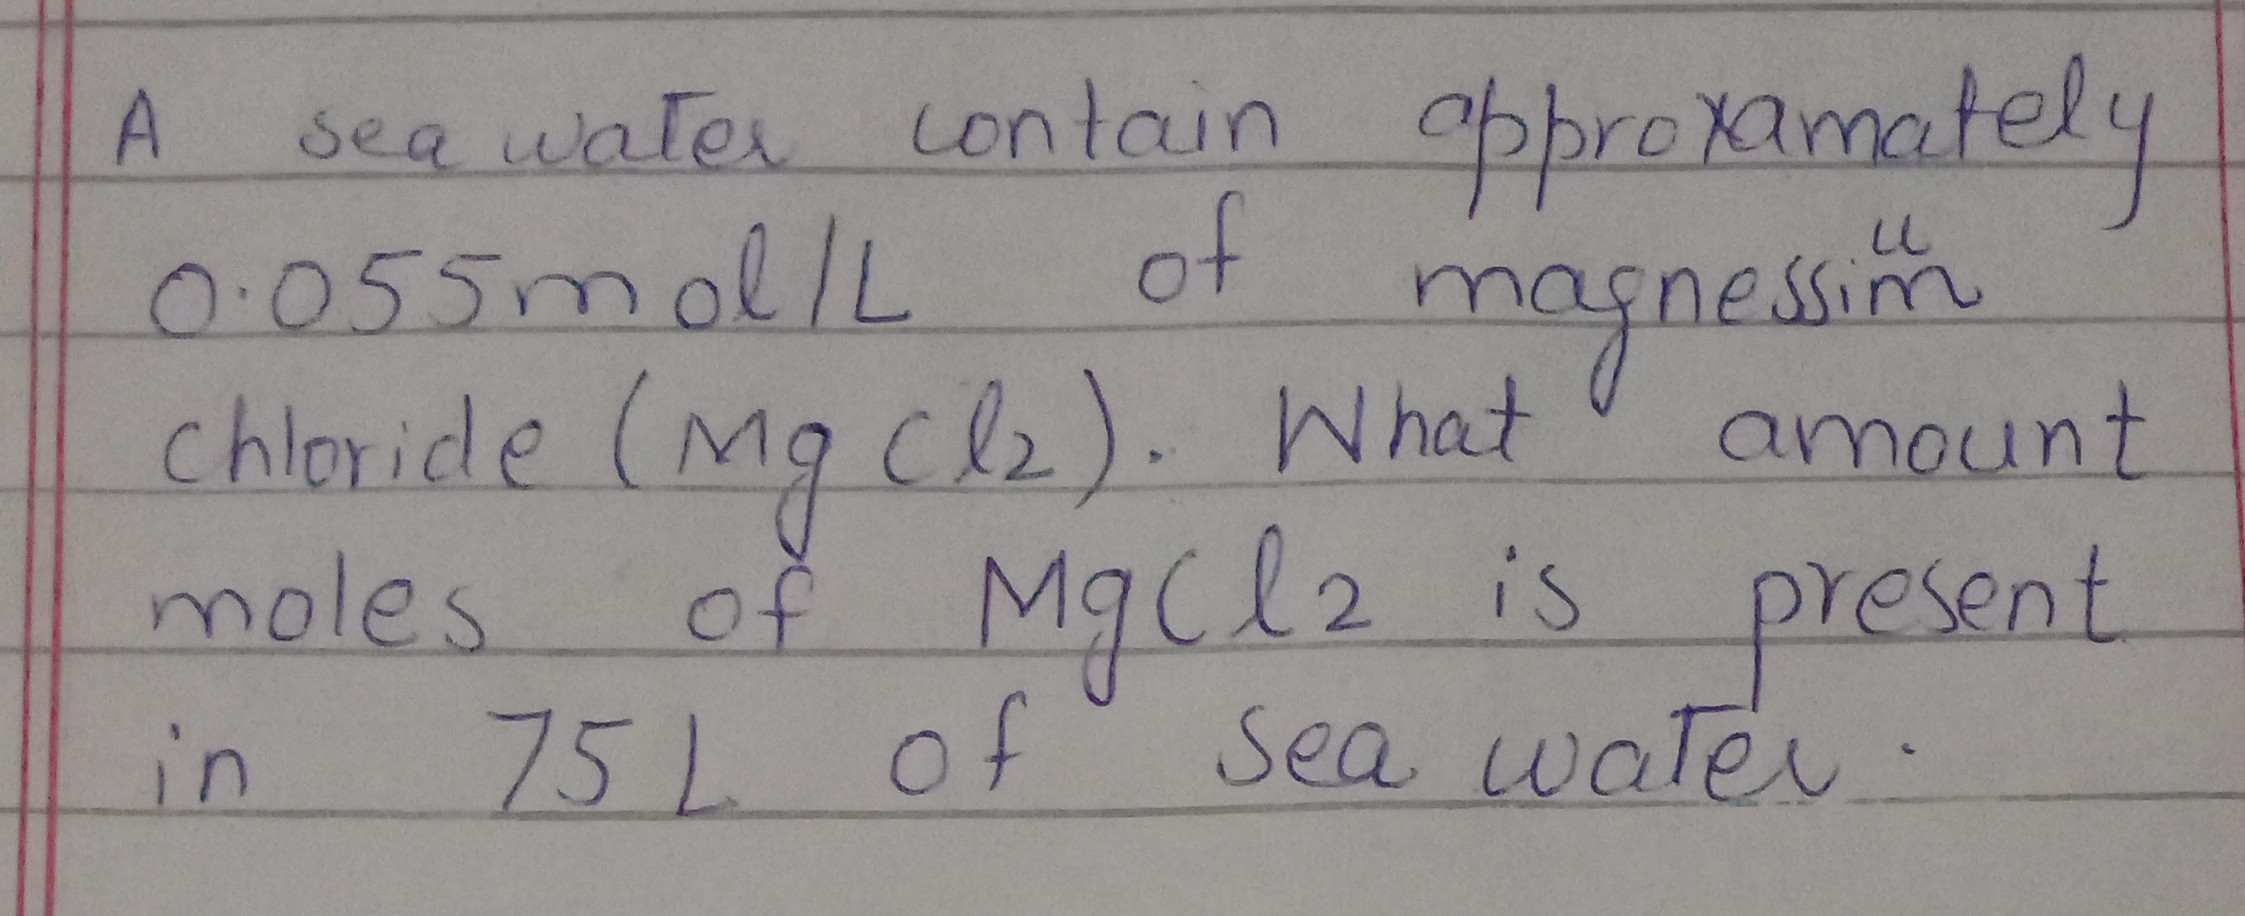 A sea water contain approxamately
0.055mol/L of magnessium
chloride (MgCl2). What amount
moles of MgCl2 is present
in 75L of sea water.